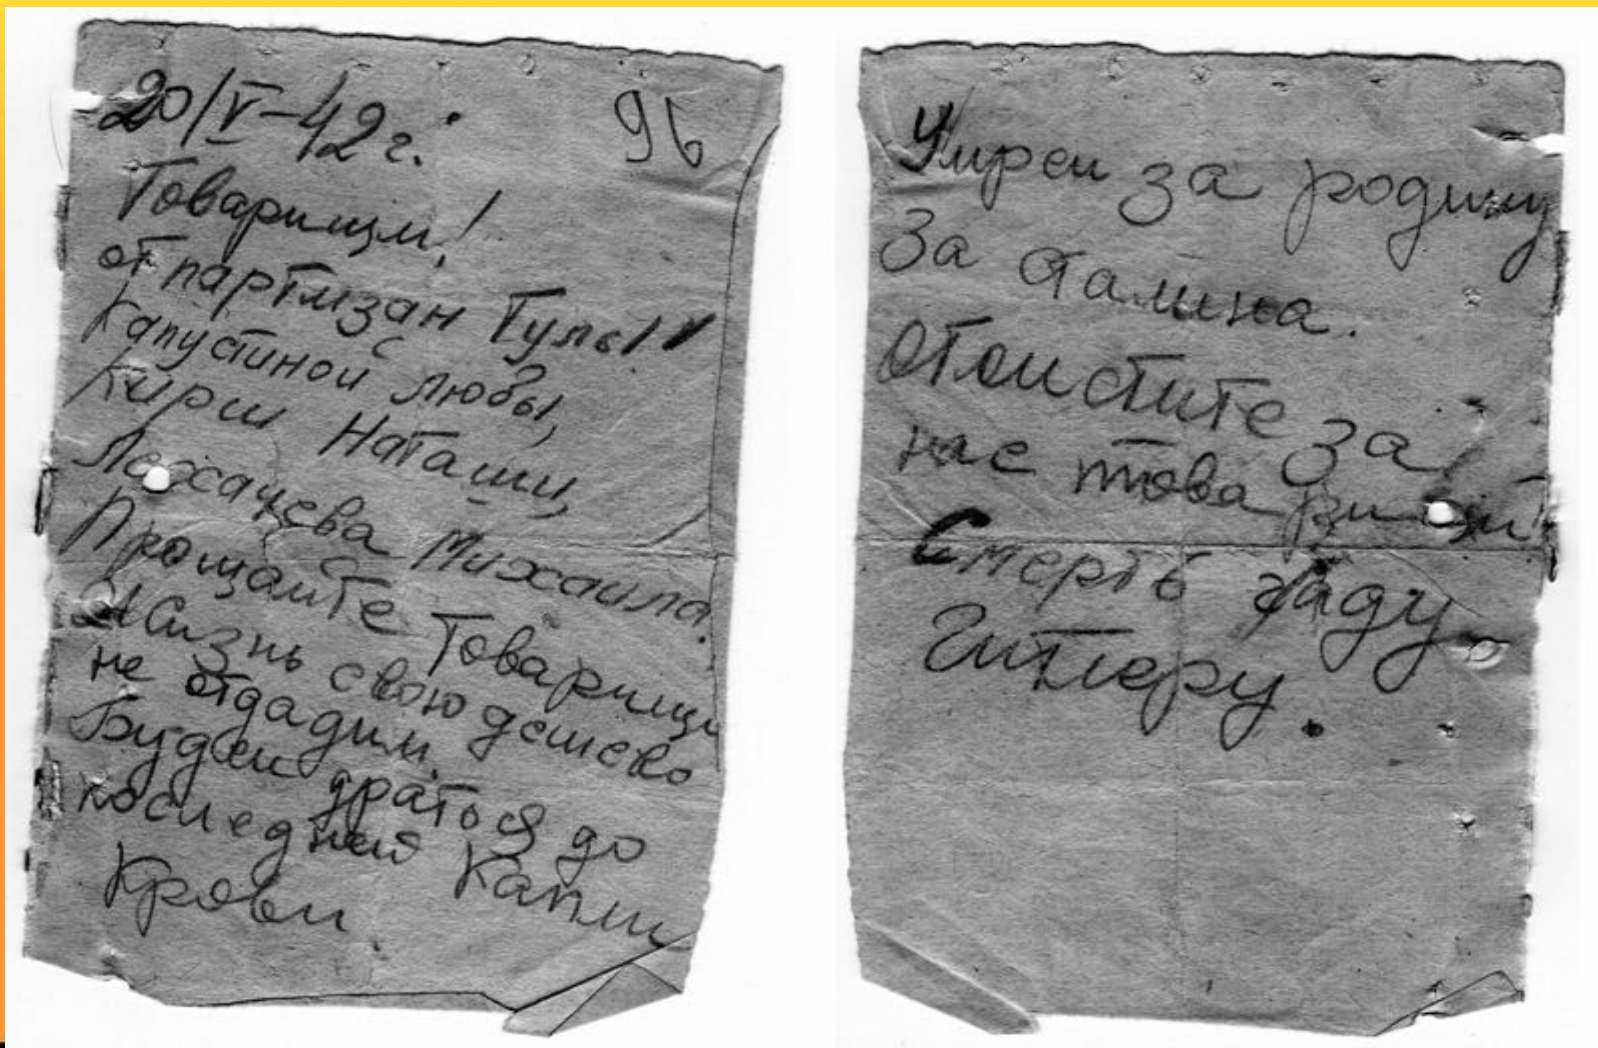 20/V-42 г.
96
Товарищи!
от партизан Тулы!
Капустиной Любы,
Кирш Наташи,
Лехачева Михаила.
Прощайте Товарищи
Жизнь свою дешево
не отдадим.
Будем драться до
последней Капли
Крови.
Умрем за родину
За сталина.
отомстите за
нас товарищи!
Смерть гаду
Гитлеру.